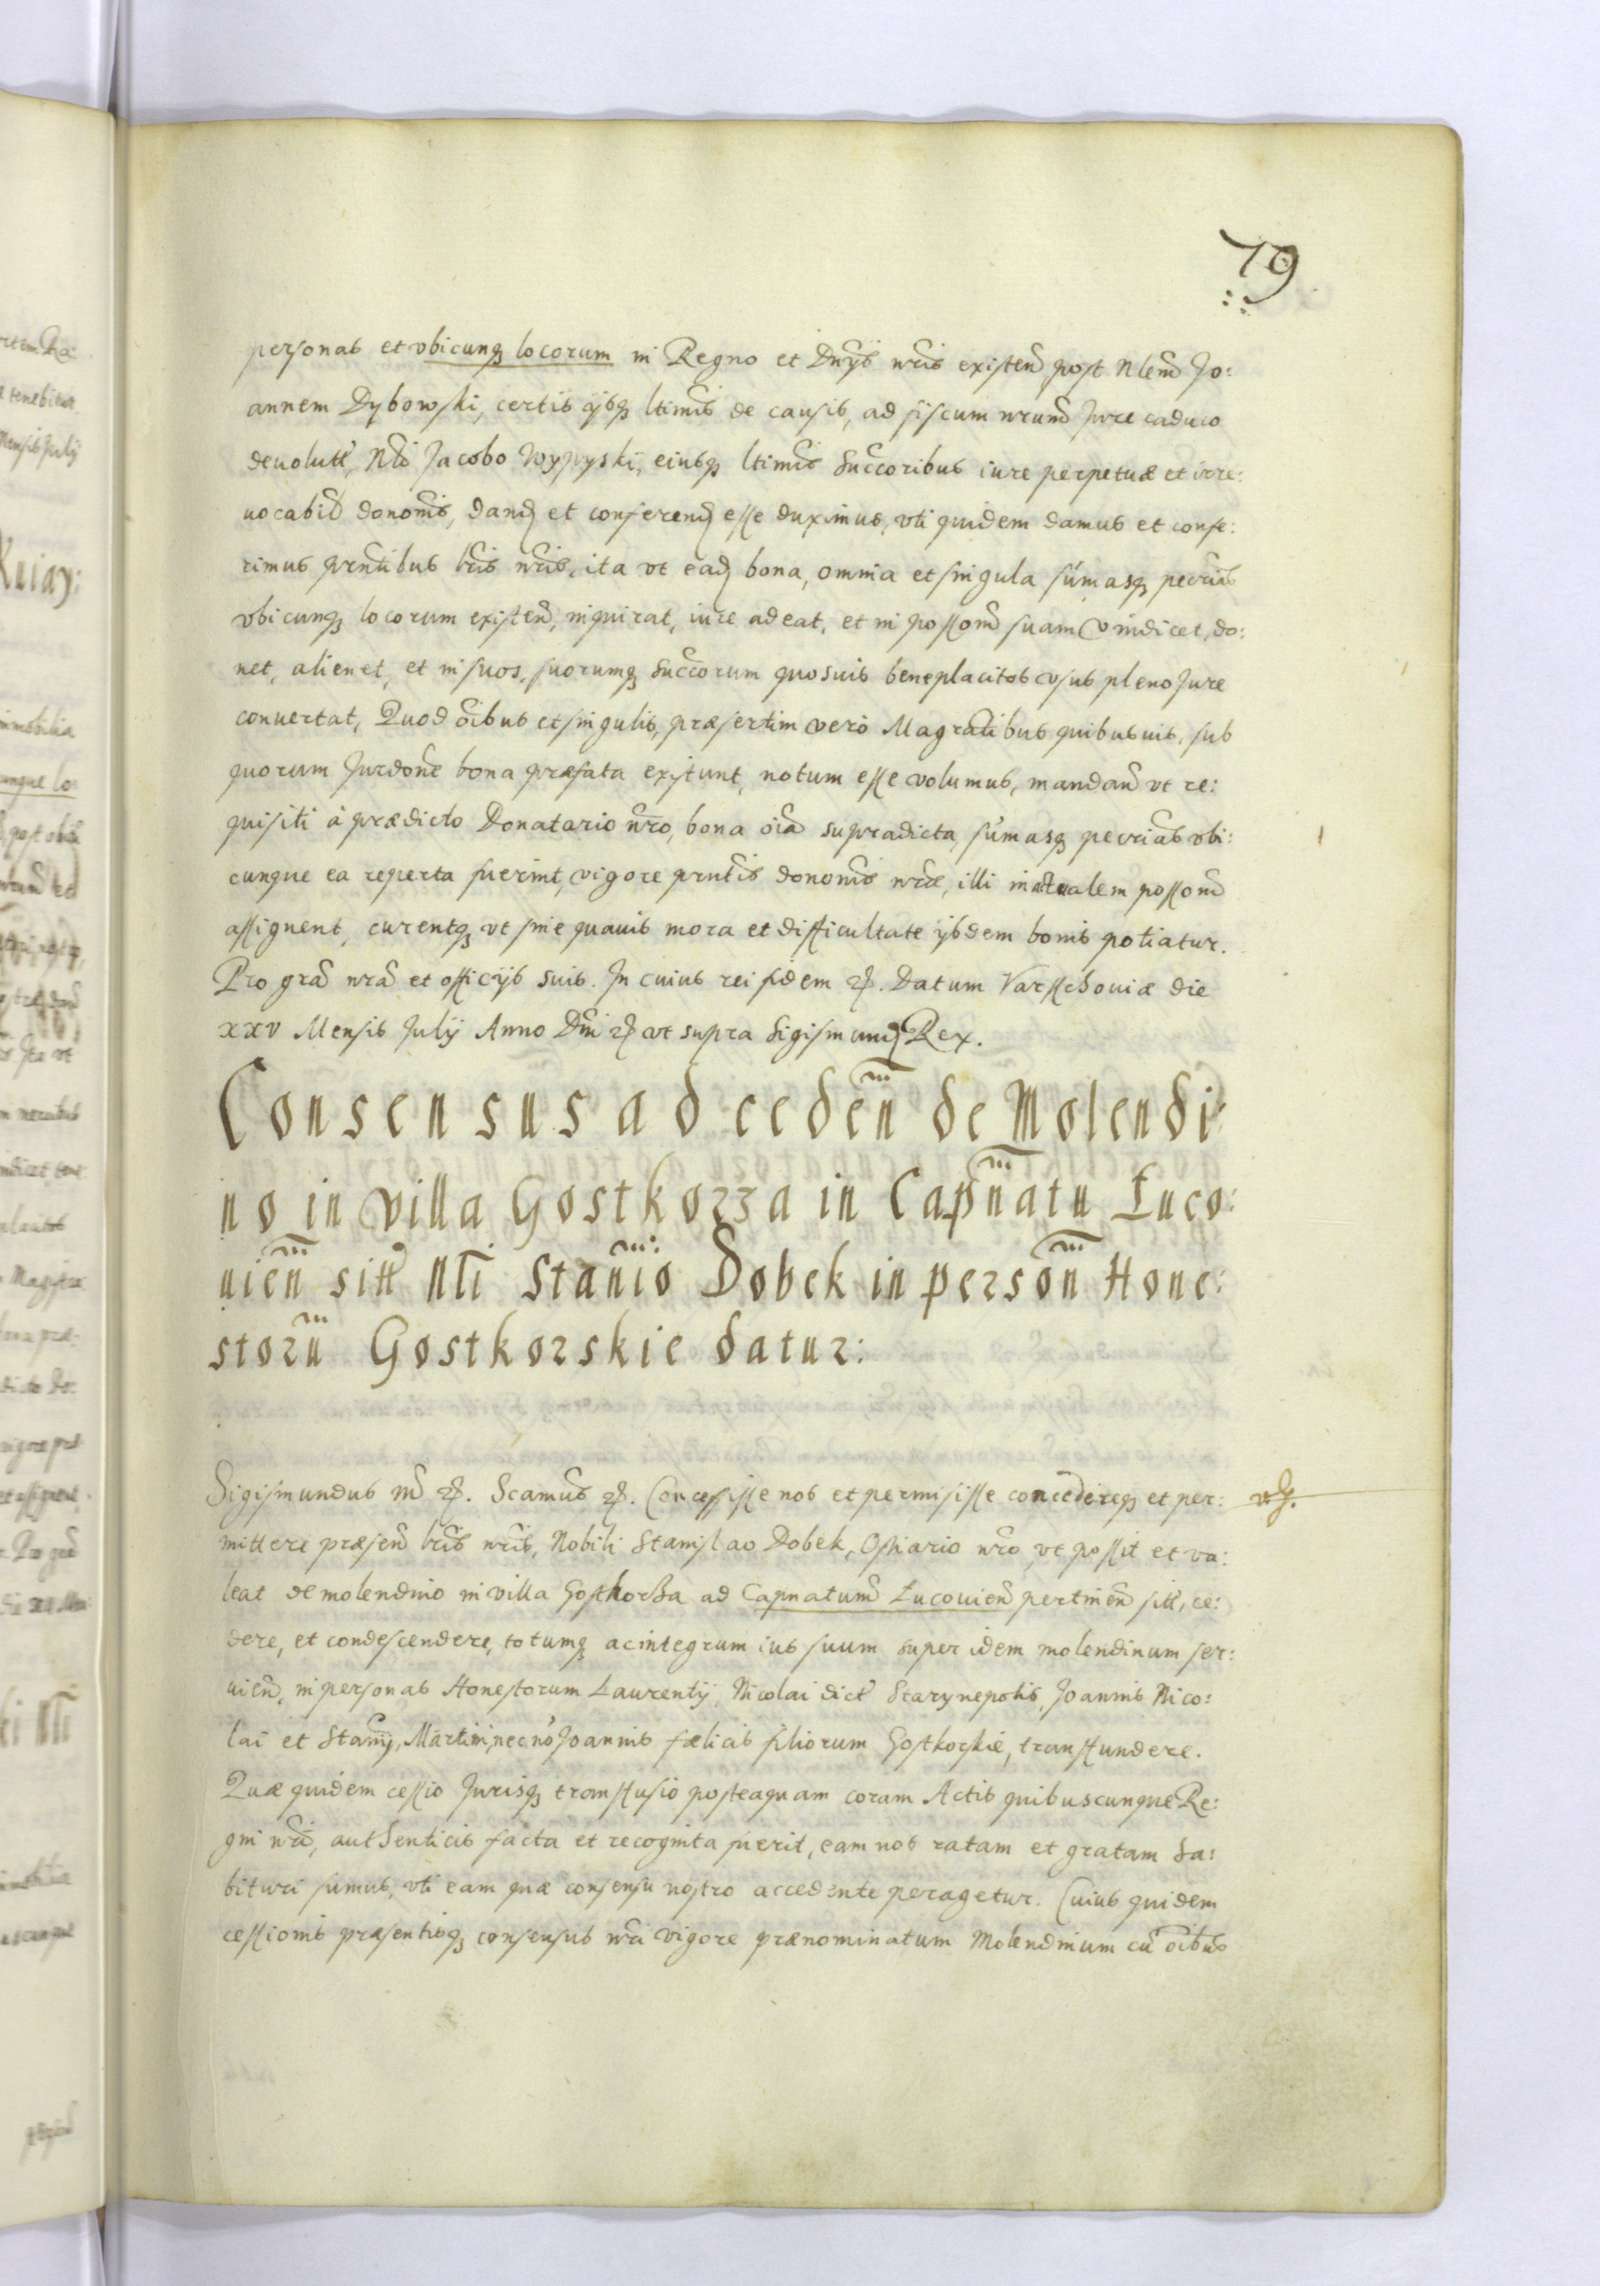 79
personas et vbicunq locorum in Regno et Dnÿs nris existen post Nlem Jo:
annem Dybowski, certis ijsq ltimis de causis, ad fiscum nrum Jure caduco
deuolut, Nli Jacobo Wypyski, eiusq ltimis Succoribus iure perpetuæ et irre:
uocabil donomis, dand et conferend esse duximus, vti quidem damus et confe:
rimus prntibus lris nris, ita vt ead bona, omnia et singula sumasq pecrias
vbicunq locorum existen, inquirat, iure adeat, et in possom suam vindicet, do:
net, alienet, et in suos, suorumq Succorum quosuis beneplacitos vsus pleno Jure
conuertat, Quod oibus et singulis, præsertim vero Magratibus quibusuis, sub
quorum Jurdone bona præfata existunt, notum esse volumus, mandan vt re:
quisiti à prædicto Donatario nro, bona oia supradicta, sumasq pecrias vbi:
cunque ea reperta fuerint, vigore prntis donomis nræ, illi in actualem possom
assignent, curentq vt sine quauis mora et difficultate ijsdem bonis potiatur.
Pro gra nra et officijs suis. In cuius rei fidem etc. Datum Varsschouiæ die
xxv Mensis Julij Anno Dni etc vt supra Sigismund Rex.
Consensus ad ceden de Molendi:
no in villa Gostkorza in Capnatu Luco:
uien sitt Nli Stanio Dobek in person Hone:
storu Gostkorskie datur:
Sigismundus III etc. Scamus etc. Concessisse nos et permisisse concedereq et per:
mittere præsen lris nris, Nobili Stanislao Dobek, Ostiario nro, vt possit et va:
leat de molendino in villa Gostkorza ad Capnatum Lucouien pertinen sitt, ce:
dere, et condescendere, totumq ac integrum ius suum super idem molendinum ser:
uien, in personas Honestorum Laurentij, Nicolai dict Starynepotis, Joannis Nico:
lai et Stanij, Martini, necno Joannis fælicis filiorum Gostkorskie, transfundere.
Quæ quidem cessio Jurisq transfusio posteaquam coram Actis quibuscunque Re:
gni nri, authenticis facta et recognita fuerit, eam nos ratam et gratam ha:
bituri sumus, vti eam quæ consensu nostro accedente peragetur. Cuius quidem
cessionis præsentisq consensus nri vigore prænominatum Molendinum cu oibus